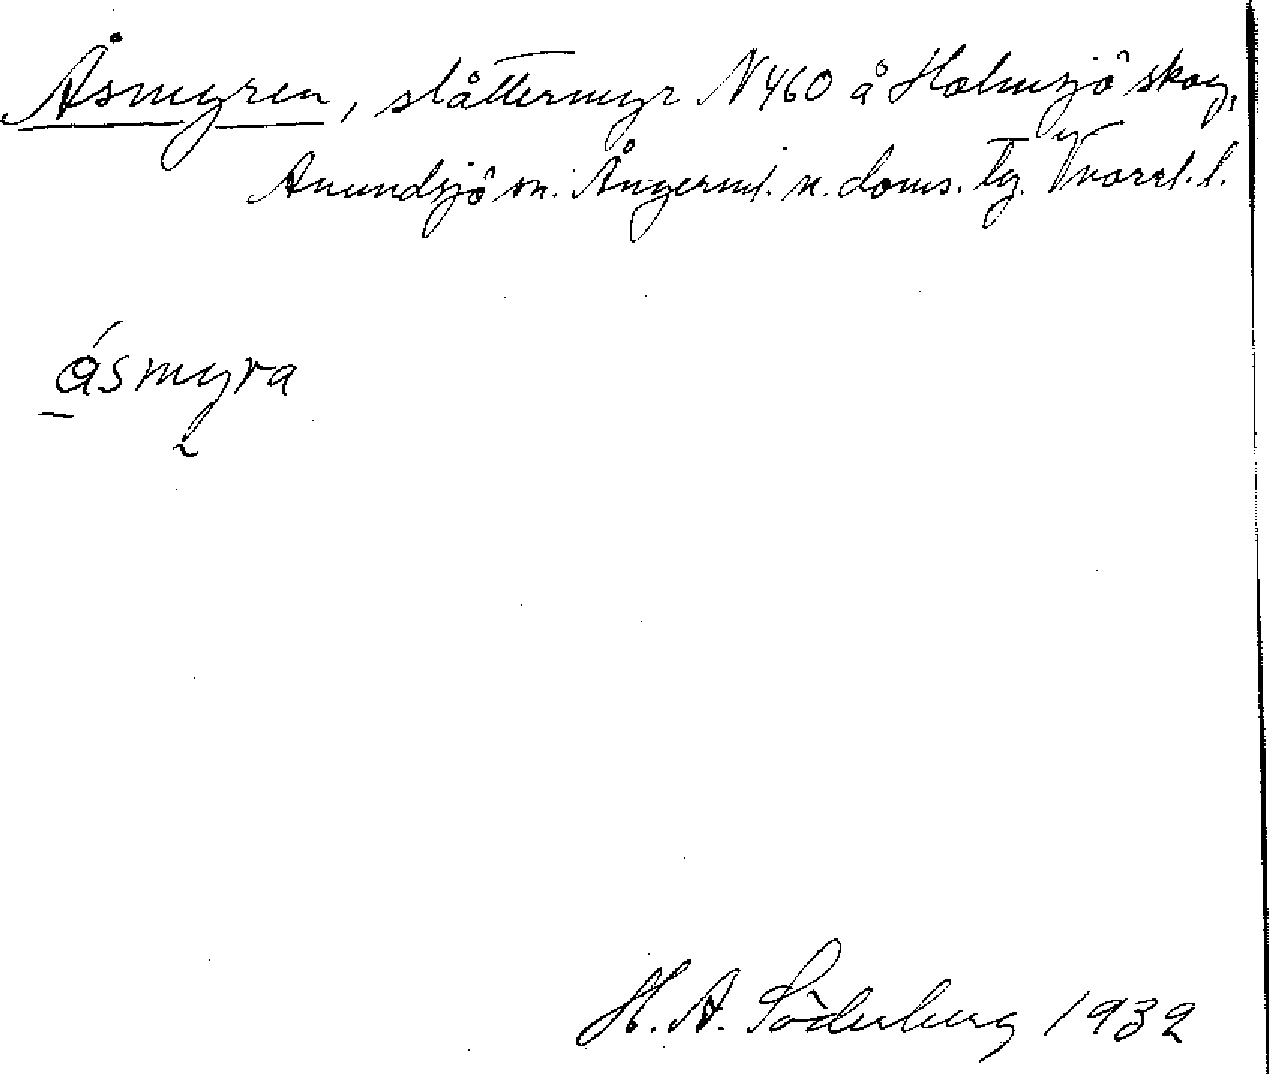 Åsmyren, slåttermyr N460 å Holmsjö skog,
Anundsjö sn. Ångerml. n. doms. tg. Vnorrl. l.
åsmyra
H. A. Söderberg 1932